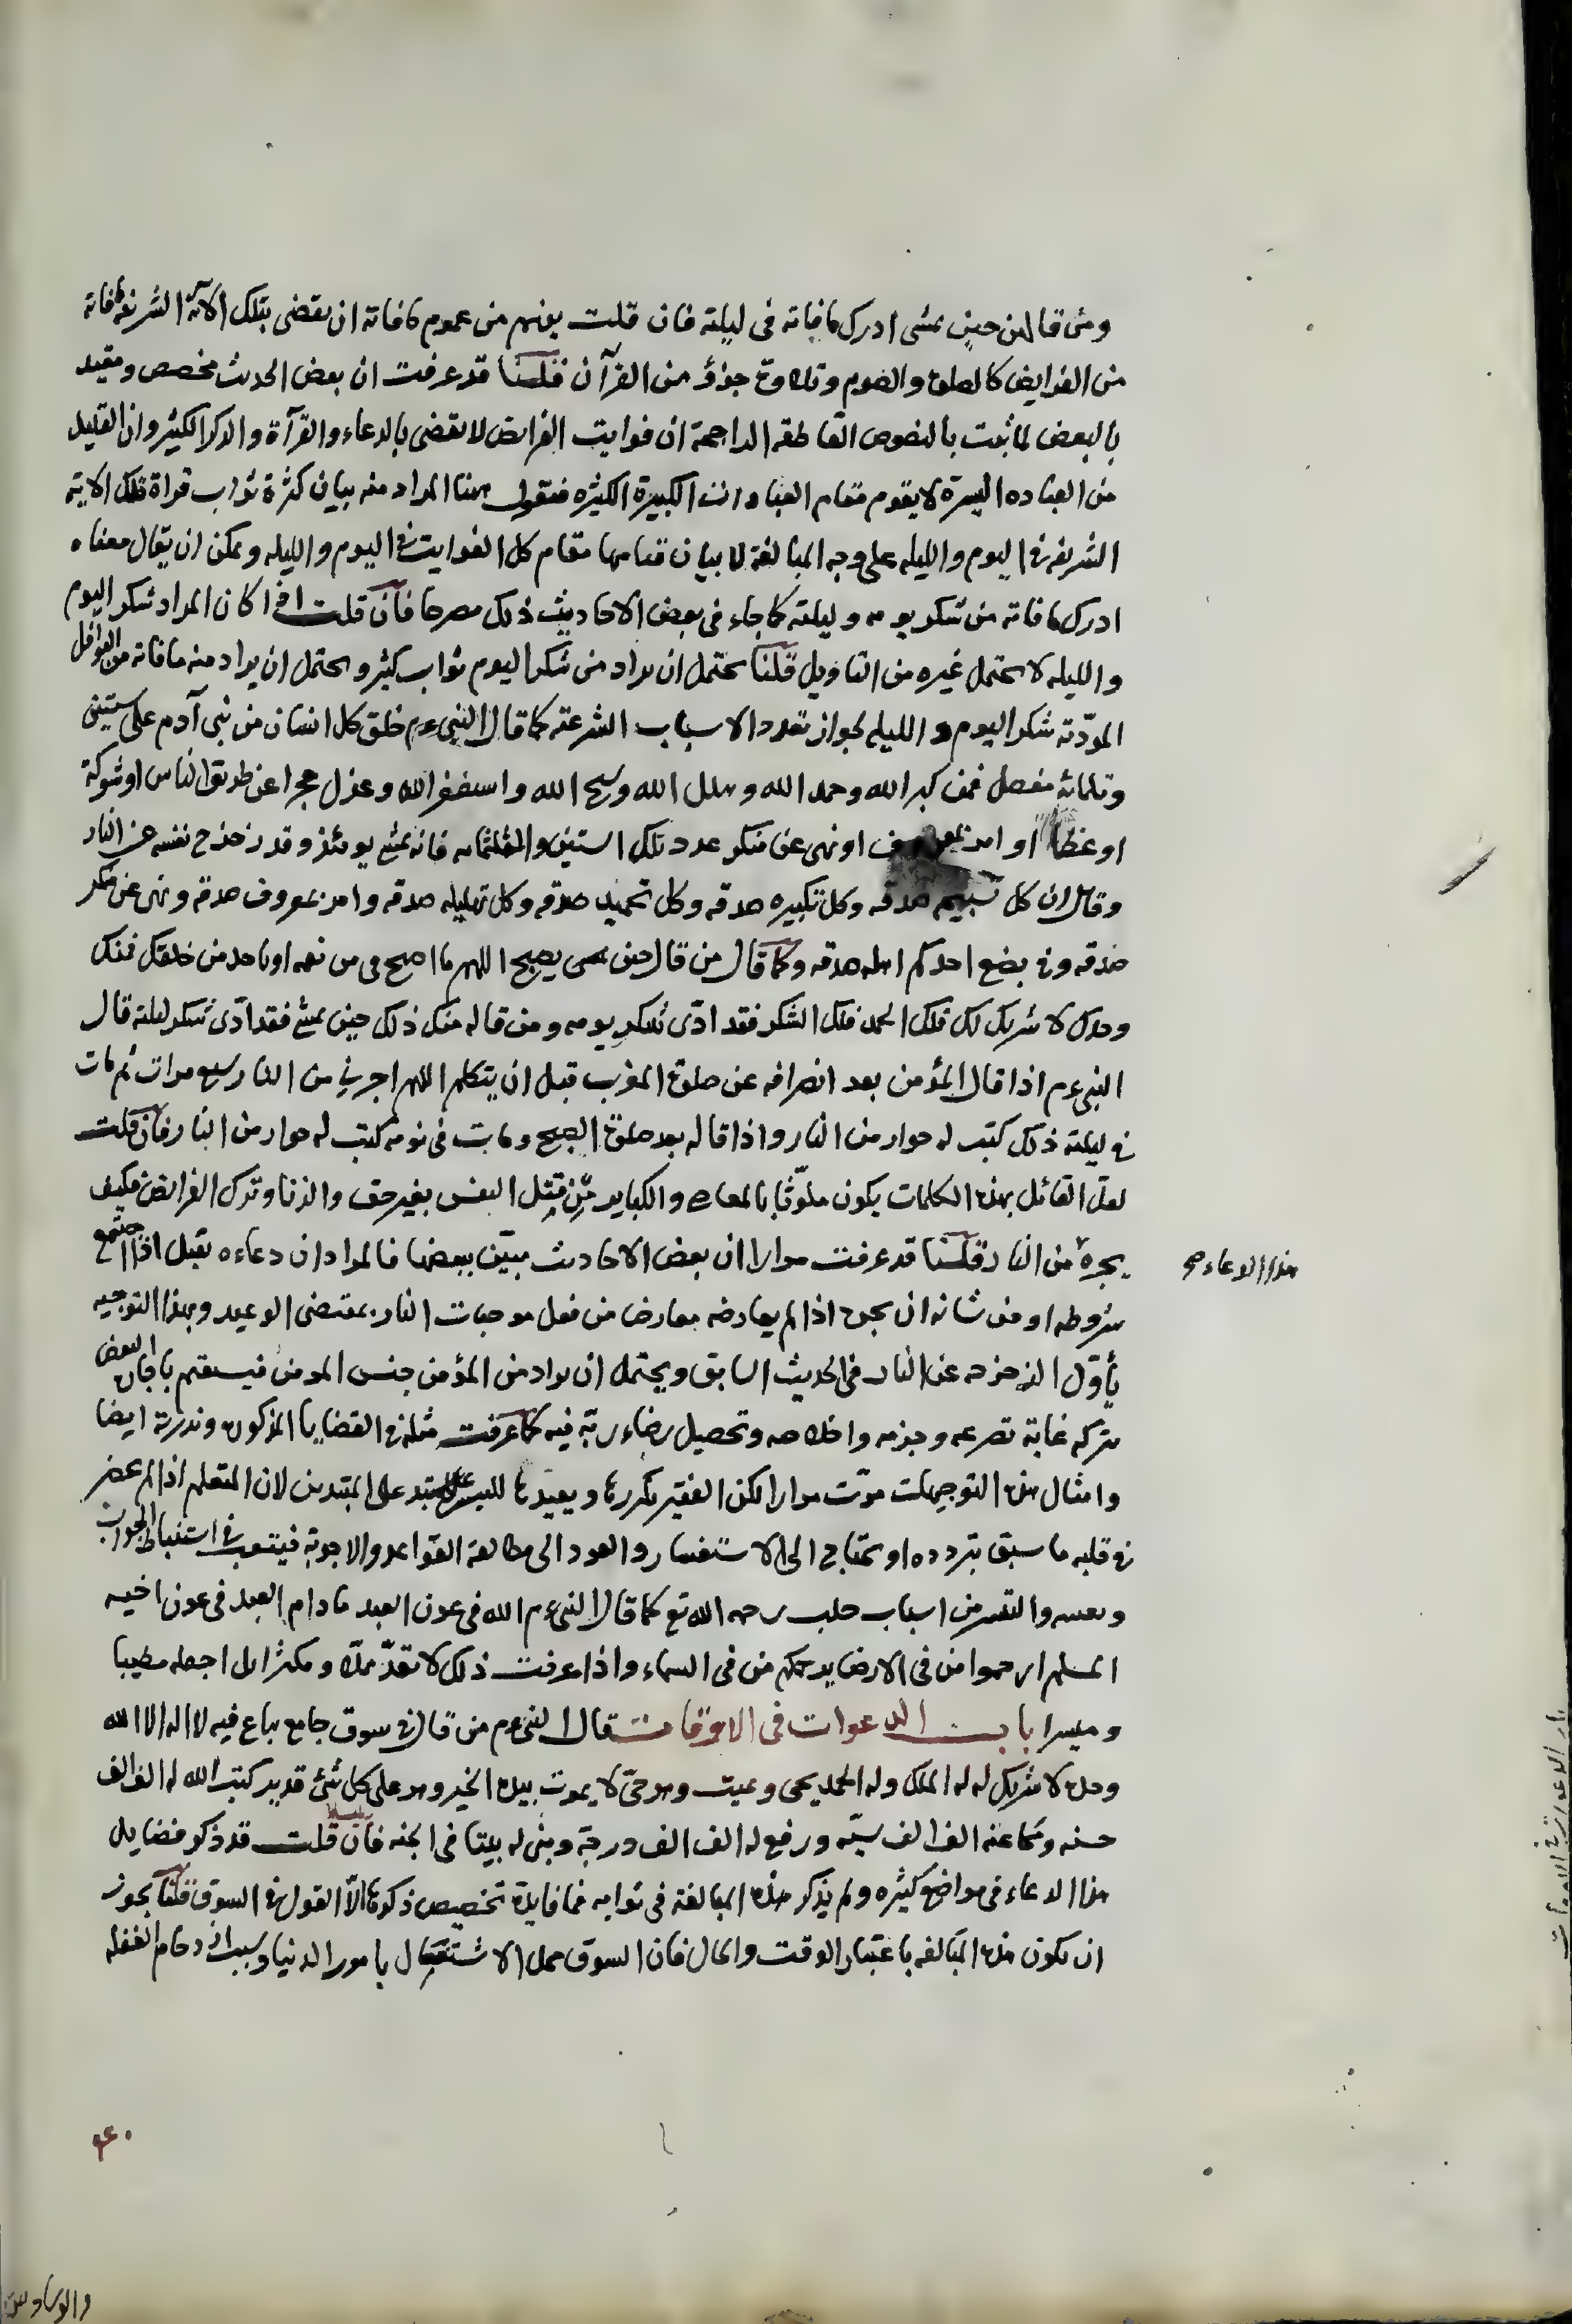 ومن قالهن حين يمسى ادرك ما فاته فى ليلته فان قلت يفهم من عموم ما فاته ان يقضى بتلك الآية الشريفة ما فاته
من الفرايض كالصلوة والصوم وتلاوة جزؤ من القرآن قلنا قد عرفت ان بعض الحديث مخصص ومقيد
بالبعض لما ثبت بالنصوص القاطعة الراجحة ان فوايت الفرايض لا تقضى بالدعاء والقرآة والذكر الكثير وان القليل
من العباده اليسرة لا يقوم مقام العبادات الكبيرة الكثيره فنقول ههنا المراد منه بيان كثرة ثواب قراة تلك الاية
الشريفه فى اليوم والليله على وجه المبالغة لا بيان قيامها مقام كل الفوايت فى اليوم والليله ويمكن ان يقال معناه
ادرك ما فاته من شكر يومه وليلته كما جاء فى بعض الاحاديث ذلك مصرحا فان قلت اذا كان المراد شكر اليوم
والليله لا يحتمل غيره من التاويل قلنا يحتمل ان يراد من شكر اليوم ثواب كثير ويحتمل ان يراد منه ما فاته من النوافل
المودّته شكر اليوم والليله لجواز تعدد الاسباب الشرعية كما قال النبى عم خلق كل انسان من بنى آدم على ستين
وثلثمائة مفصل فمن كبر الله وحمد الله وهلل الله وسبح الله واستغفر الله وعزل حجرا عن طريق الناس او شوكة
او عظما او امر بمعروف او نهى عن منكر عدد تلك الستين والثلثمائه فانه يمشى يومئذ وقد زحزح نفسه عن النار
وقال ان كل تسبيحه صدقه وكل تكبيره صدقه وكل تحميده صدقه وكل تهليله صدقه وامر بمعروف صدقه ونهى عن منكر
صدقه وفى بضع احدكم اهله صدقه وكما قال من قال حين يصبح اللهم ما اصبح بى من نعمه او باحد من خلقك فمنك
وحدك لا شريك لك فلك الحمد فلك الشكر فقد ادّى شكر يومه ومن قاله مثل ذلك حين يمسى فقد ادّى شكر ليلته قال
النبى عم اذا قال المؤمن بعد انصرافه عن صلوة المغرب قبل ان يتكلم اللهم اجرنى من النار سبع مرات ثم مات
فى ليلته ذلك كتب له جوار من النار واذا قاله بعد صلوة الصبح ومات فى يومه كتب له جوار من النار فان قلت
لعل القائل بهذه الكلمات يكون ملوّثا بالمعاصى والكباير من قتل النفس بغير حق والزنا وترك الفرايض فكيف
يجره من النار قلنا قد عرفت مرارا ان بعض الاحاديث يبيّن ببعضها فالمراد ان دعاءه تقبل اذا اجتمع
هذا الدعاء صح
شروطه او من شانه ان يجره اذا لم يعارضه معارض من فعل موجبات النار بمقتضى الوعيد وبهذا التوجيه
يأوّل الزحزحه عن النار فى الحديث السابق ويحتمل ان يراد من المؤمن جنس المومن فيستقم باجابة البعض
بتركه غاية تضرعه وجزمه واخلاصه وتحصيل رضاء ربّه فيه كما عرفت مثله فى القضايا المذكوره وندرته ايضا
وامثال هذه التوجيهات مرّت مرارا لكن الفقير يكررها ويعيدها على المبتدين لان المتعلم اذا لم يحضر
فى قلبه ما سبق بتردده او يحتاج الى الاستفسار والعود الى مطالعة القواعد والاجوبة فيتعب فى استنباط الجواب
من اسباب جلب رحمة الله تع كما قال النبى عم الله فى عون العبد ما دام العبد فى عون اخيه
المسلم ارحموا من فى الارض يرحمكم من فى السماء واذا عرفت ذلك لا تعدّ مملّا ومكثرا بل اجعله مطيبا
وميسرا باب الدعوات فى الاوقات قال النبى عم من قال فى سوق جامع يباع فيه لا اله الا الله
وحده لا شريك له له الملك وله الحمد يحى ويميت وهو حىّ لا يموت بيده الخير وهو على كل شئ قدير كتب الله له الف الف
حسنه ومحا عنه الف الف سيّئه ورفع له الف الف درجة وبنى له بيتا فى الجنه فان قلت قد ذكر فضايل
هذا الدعاء فى مواضع كثيره ولم يذكر هذه المبالغة فى ثوابه فما فايدة تخصيص ذكرها الا القول فى السوق قلنا يجوز
ان يكون هذه المبالغه باعتبار الوقت والحال فان السوق محل الاشتغال بامور الدنيا وسبب ازدحام الغفله
والوساوس